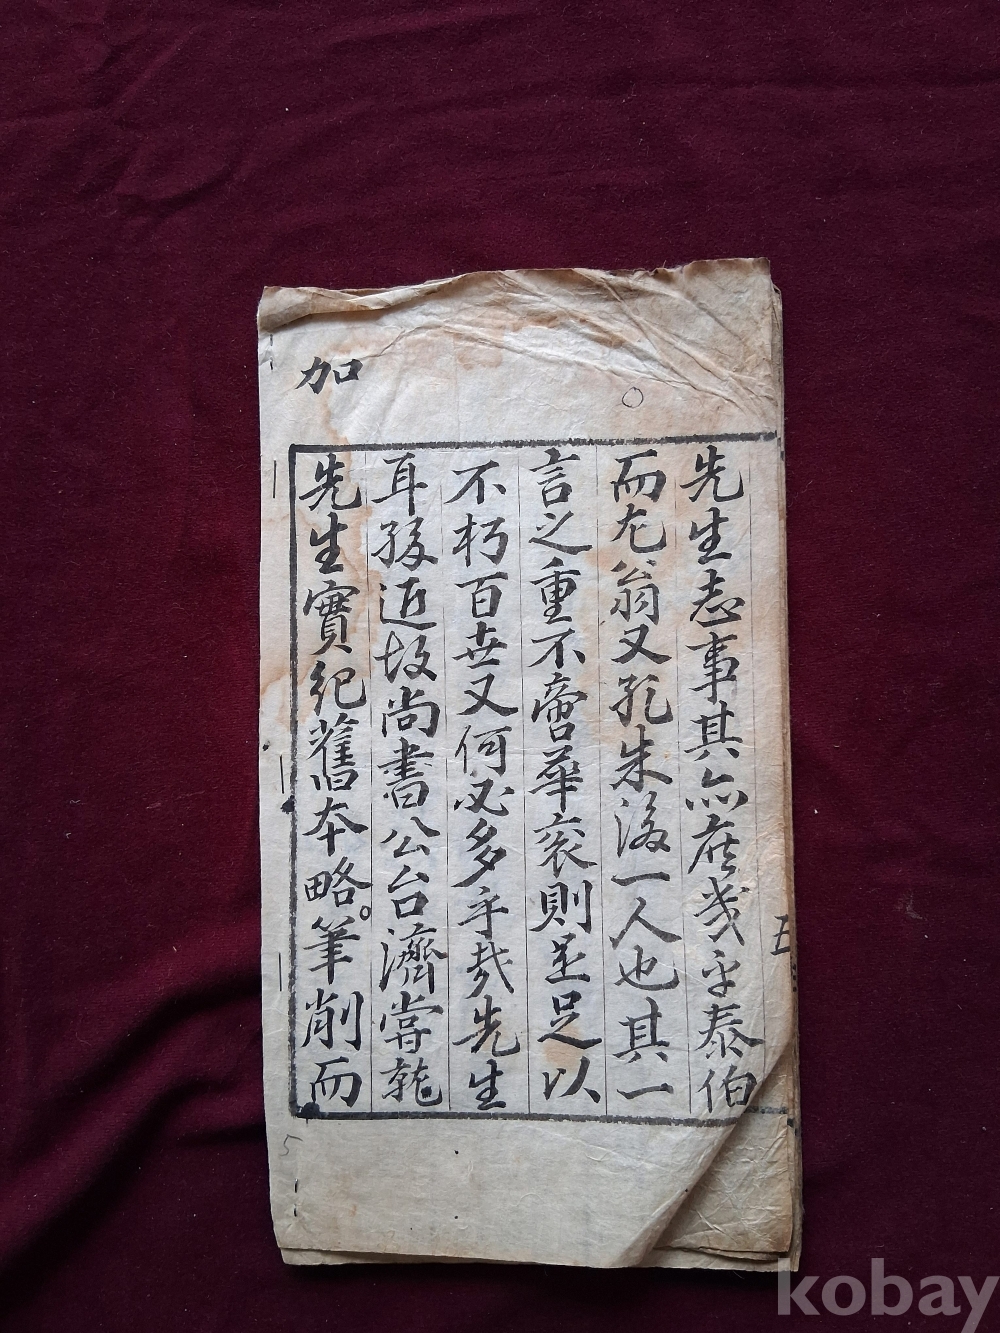 加
先生志事其亦庶幾乎泰伯
而尤翁又孔朱後一人也其一
言之重不啻華袞則是足以
不朽百世又何必多乎哉先生
耳孫近故尚書公台濟嘗就
先生實紀舊本略筆削而
五
5
kobay